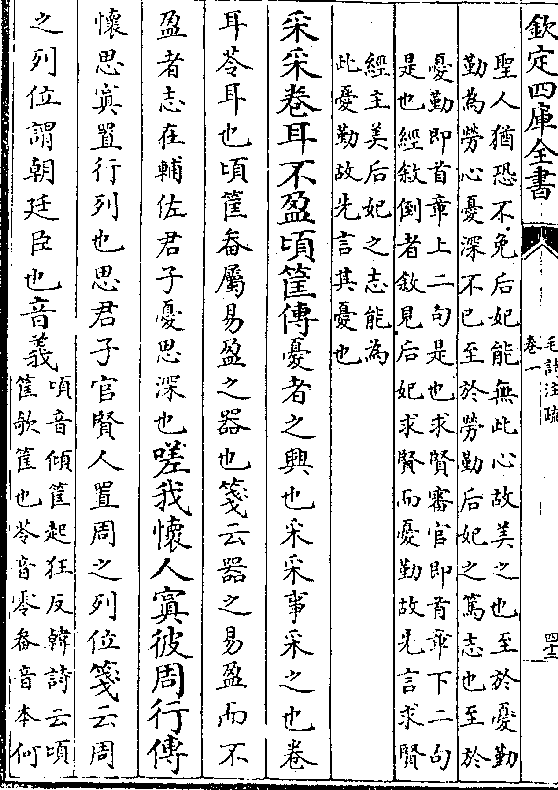 欽定四庫全書
毛詩注疏
卷一
四十二
聖人猶恐不免后妃能無此心故美之也至於憂勤
勤為勞心憂深不已至於勞勤后妃之篤志也至於
憂勤即首章上二句是也求賢審官即首章下二句
是也經敘倒者敘見后妃求賢而憂勤故先言求賢
經主美后妃之志能為
此憂勤故先言其憂也
采采卷耳不盈頃筐傳憂者之興也采采事采之也卷
耳苓耳也頃筐畚屬易盈之器也箋云器之易盈而不
盈者志在輔佐君子憂思深也嗟我懷人寘彼周行傳
懷思寘置行列也思君子官賢人置周之列位箋云周
之列位謂朝廷臣也音義
頃音傾筐起狂反韓詩云頃
筐欹筐也苓音零畚音本何